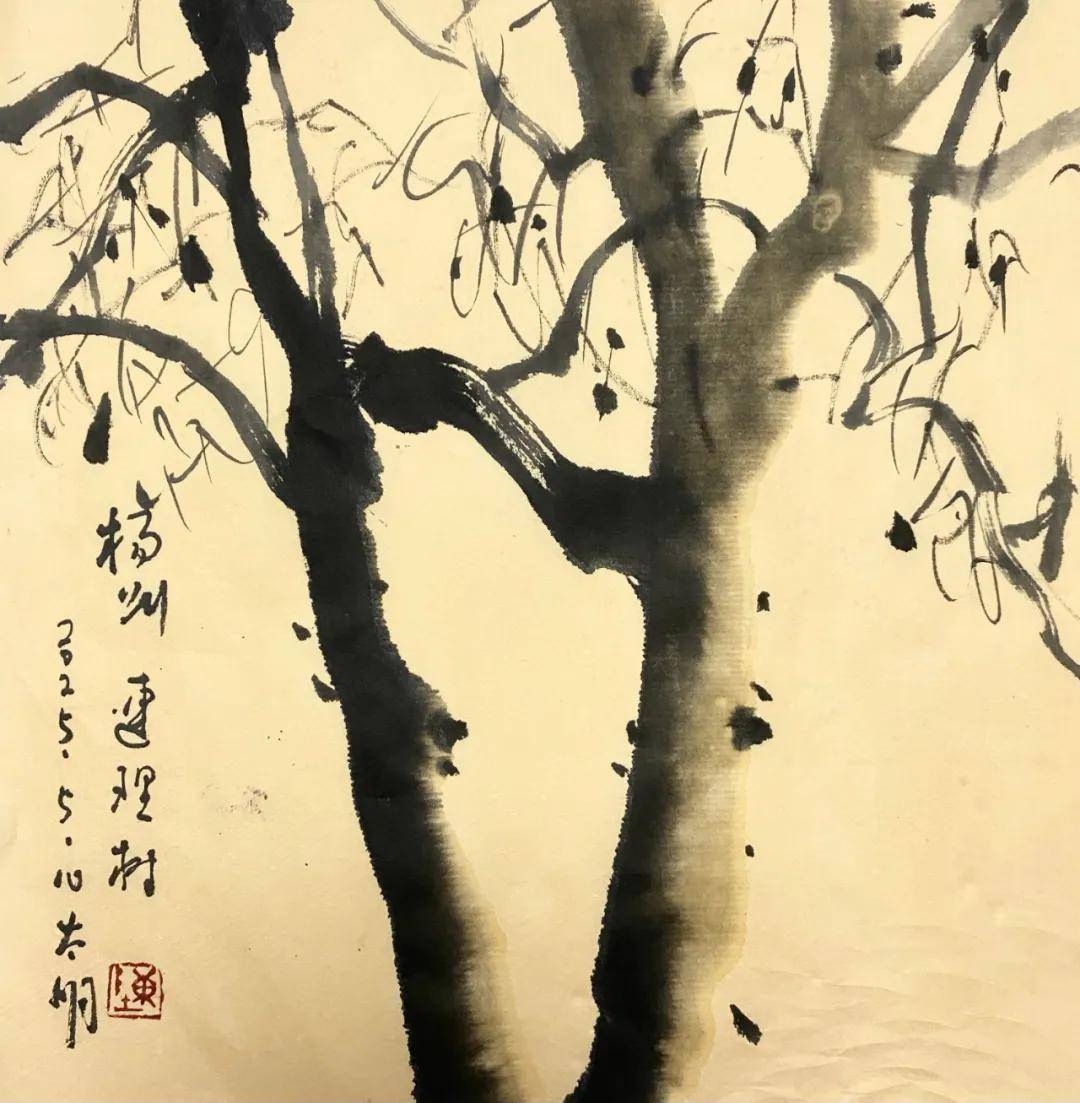 楊州 連理树
2025.5.10 太明